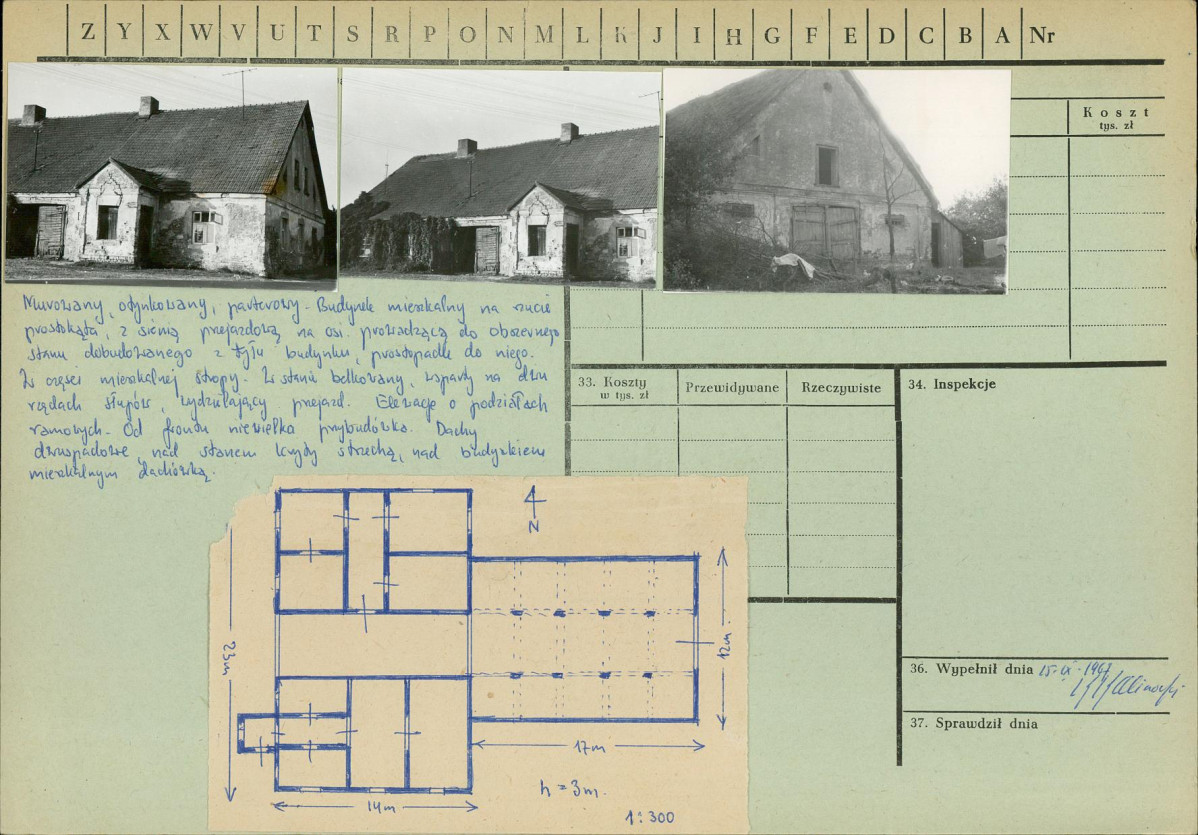 Z Y X W V U T S R P O N M L K J I H G F E D C B A Nr
Koszt
tys. zł
Murowany, otynkowany, parterowy. Budynek mieszkalny na rzucie
prostokąta, z sienią przejazdową na osi prowadzącą do obszernego
stanu dobudowanego z tyłu budynku, prostopadle do niego.
W części mieszkalnej stropy. W stanie belkowany, wsparty na dwu
rzędach słupów, wydzielający przejazd. Elewacje o podziałach
ramowych. Od frontu niewielka przybudówka. Dachy
dwuspadowe, nad stanem kryty strzechą, nad budynkiem
mieszkalnym dachówką.
33. Koszty
w tys. zł
Przewidywane
Rzeczywiste
34. Inspekcje
N
23m
12m.
17m
14m
h = 3m.
1:300
36. Wypełnił dnia 15.IX.196
37. Sprawdził dnia